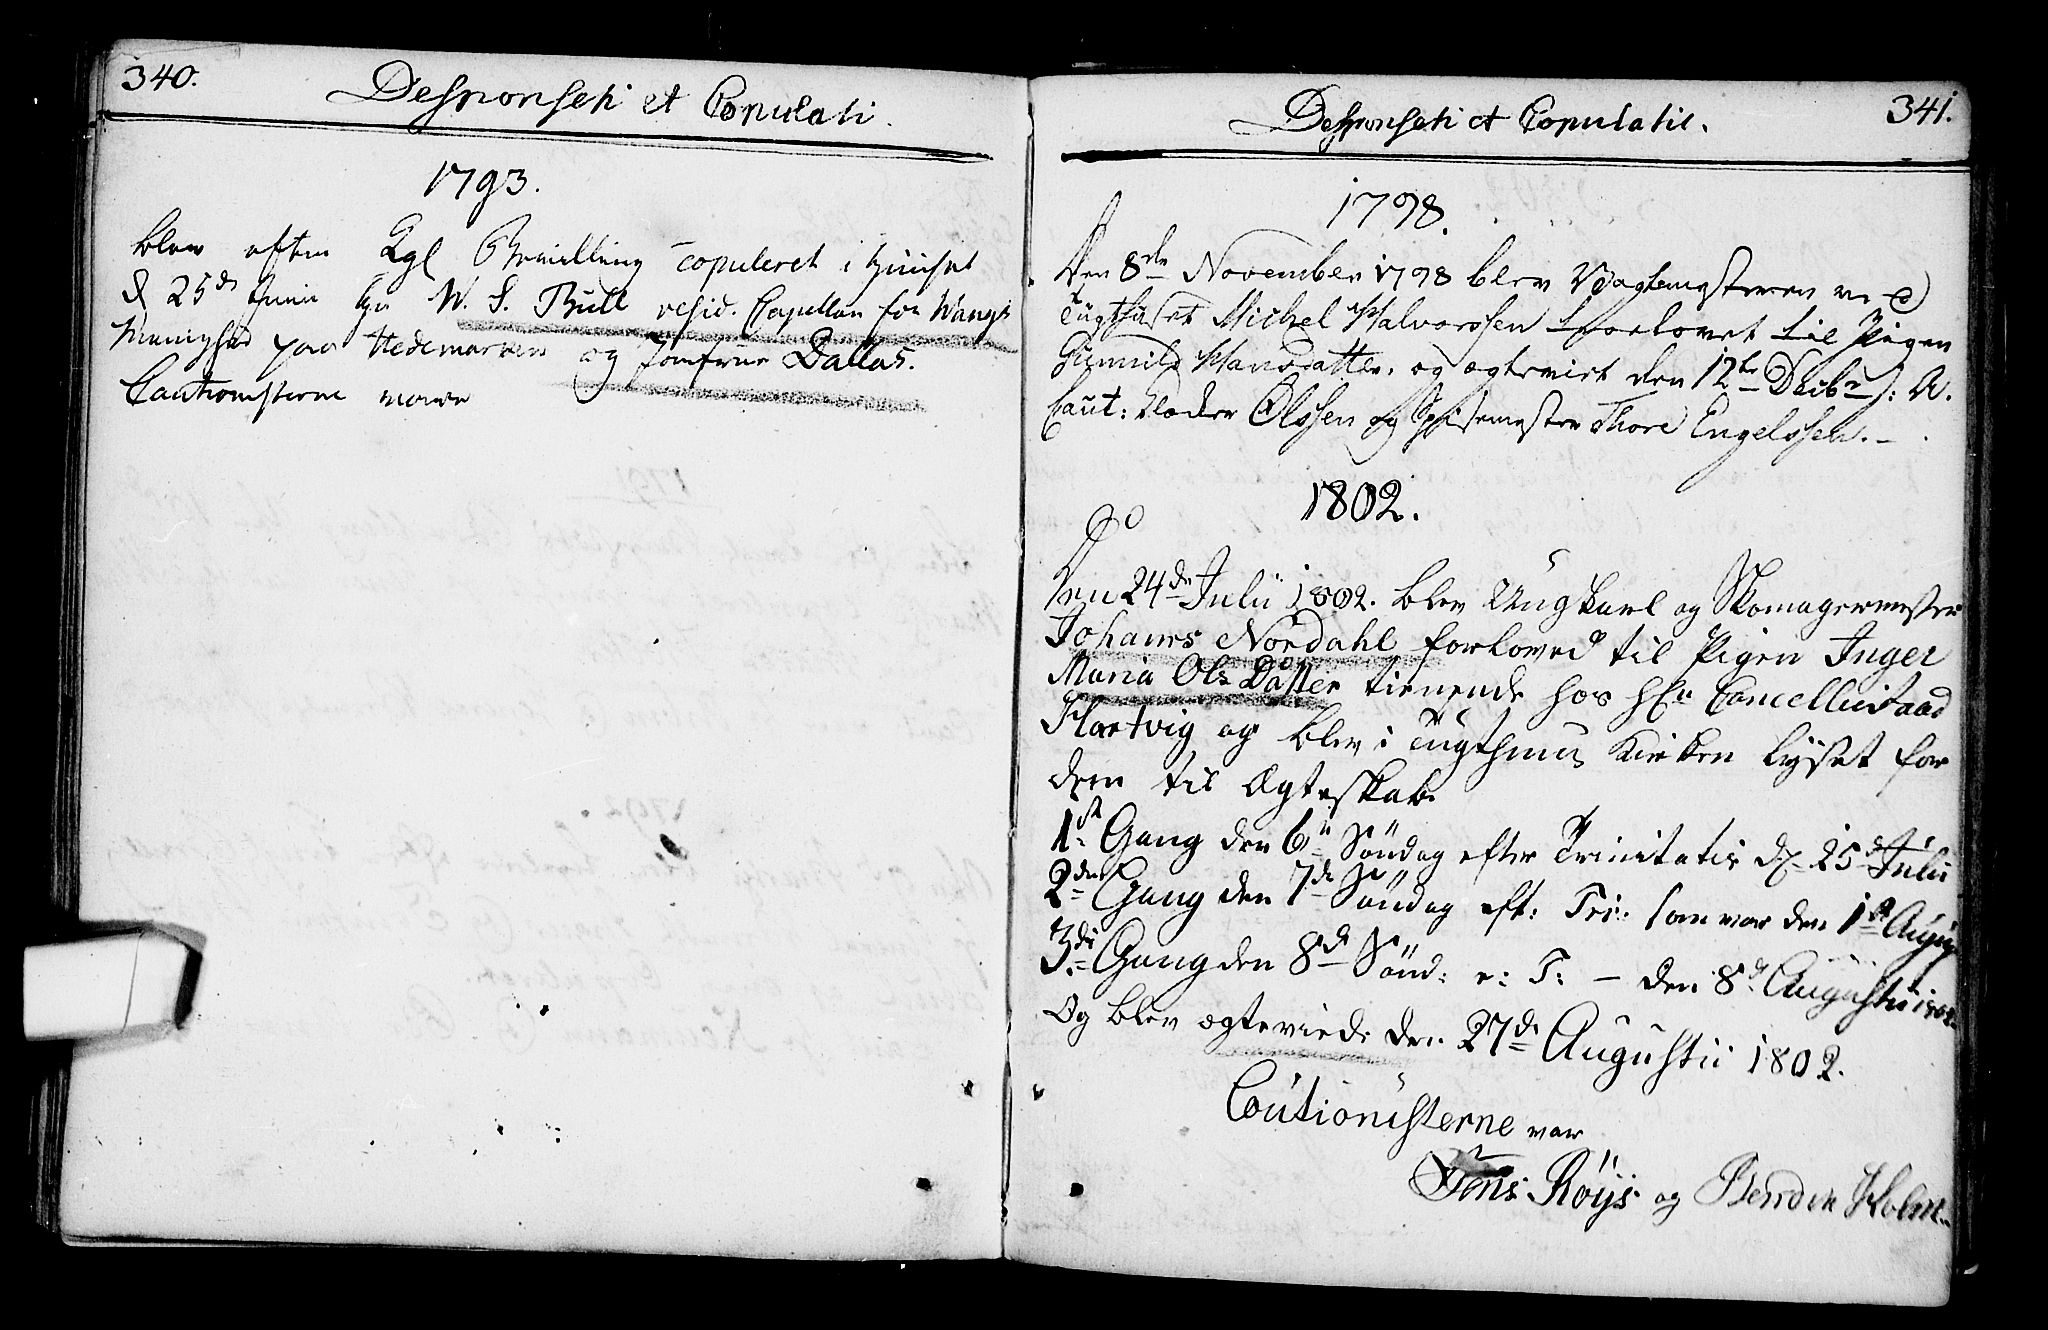 340.
Desponsati et Copulati.
1793.
blev efter Kgl Bevilling copuleret i Huuset
d 25de Junii Hr W. S. Bull resid. Capellan for Wangs
Menighed paa Hedemarken og Jomfrue Dallas.
Cautionisterne vare
341.
Desponsati et Copulatie.
1798.
Den 8de November 1798 blev Vagtmesteren ved
Tugthuset Michel Halvorssen trolovet til Pigen
Gunnild Hansdatter. og ægteviet den 12te Decbr s: A.
Caut: Peder Olssen og Spisemester Thore Engelssen.
1802.
Den 24de Julii 1802. blev Ungkarl og Skomagermester
Johanes Nordahl forloved til Pigen Inger
Maria Ols Datter tienende hos Hr Cancelliraad
Hartvig og blev i Tugthuus Kirken lyset for
dem til Ægteskab.
1ste Gang den 6te Søndag efter Trinitatis d 25de Julii
2den Gang den 7de Søndag eft: Tri: som var den 1ste August
3die Gang den 8de Sønd: e: T: – den 8de Augustii 1802.
Og blev ægteviede den 27de Augustii 1802.
Coutionisterne var
Jens Röÿs og Bendix Holm